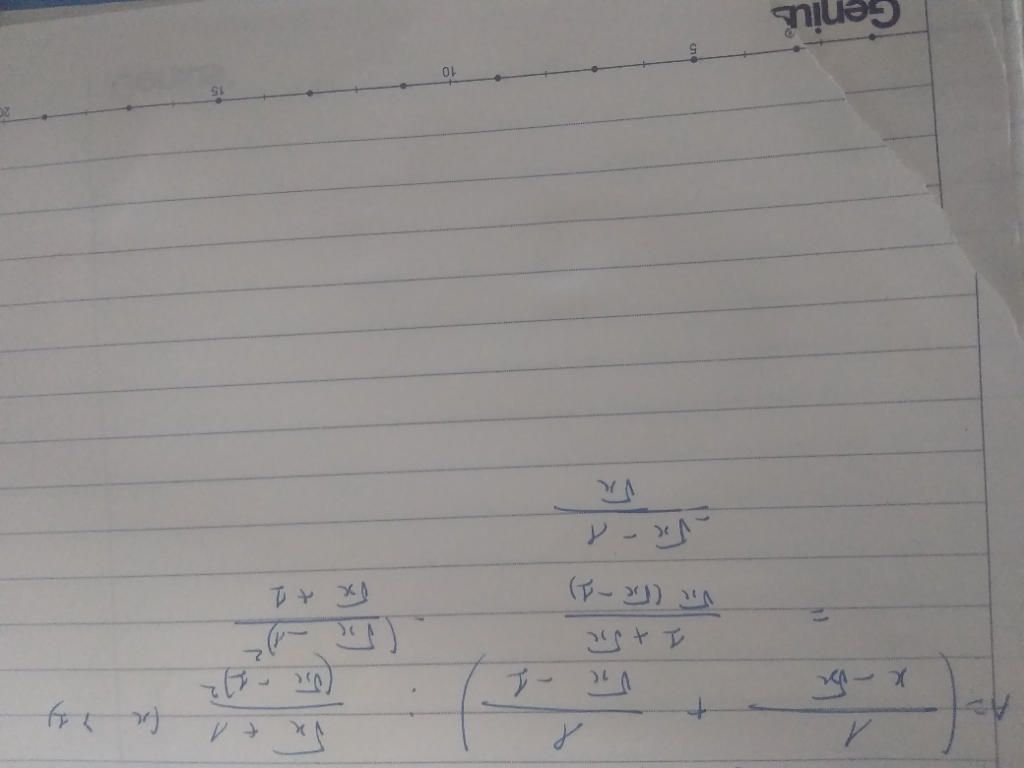 A = (1/(x - √x) + 1/(√x - 1)) : (√x + 1)/(√x - 1)² (x > 1)
= (1 + √x)/(√x (√x - 1)) . (√x - 1)²/(√x + 1)
= (√x - 1)/√x
5 10 15 20
Genius